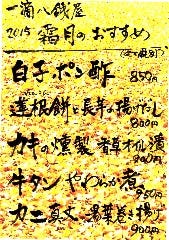 一滴八銭屋
2015 霜月のおすすめ
白子ポン酢
850円
蓮根餅と長芋の揚げだし
800円
カキの燻製 香草オイル漬
800円
牛タン やわらか煮
850円
カニ真丈 湯葉巻き揚げ
900円